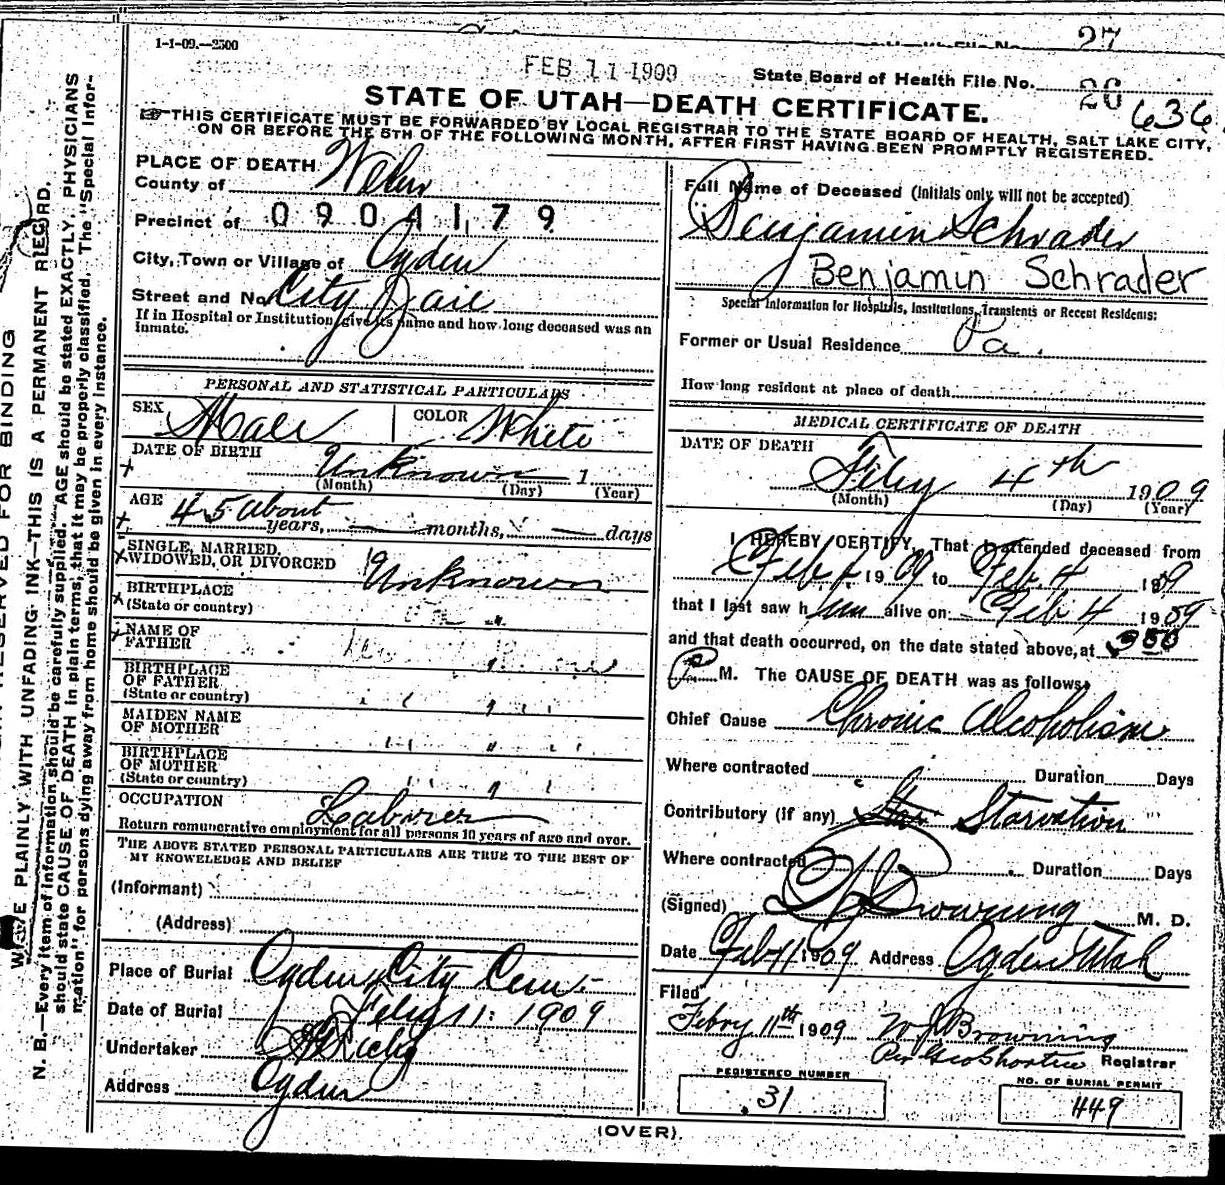 27
1-1-09.—2500
FEB 11 1909
State Board of Health File No. 26 636
STATE OF UTAH—DEATH CERTIFICATE.
☞THIS CERTIFICATE MUST BE FORWARDED BY LOCAL REGISTRAR TO THE STATE BOARD OF HEALTH, SALT LAKE CITY,
ON OR BEFORE THE 5TH OF THE FOLLOWING MONTH, AFTER FIRST HAVING BEEN PROMPTLY REGISTERED.
PLACE OF DEATH
County of Weber
Precinct of 0904179
City, Town or Village of Ogden
Street and No. City Jail
If in Hospital or Institution, give its name and how long deceased was an
inmate.
PERSONAL AND STATISTICAL PARTICULARS
SEX Male COLOR White
DATE OF BIRTH Unknown 1
(Month) (Day) (Year)
AGE 45 about
years, months, days
SINGLE, MARRIED,
WIDOWED, OR DIVORCED Unknown
BIRTHPLACE
(State or country)
NAME OF
FATHER
BIRTHPLACE
OF FATHER
(State or country)
MAIDEN NAME
OF MOTHER
BIRTHPLACE
OF MOTHER
(State or country)
OCCUPATION Laborer
Return remunerative employment for all persons 10 years of age and over.
THE ABOVE STATED PERSONAL PARTICULARS ARE TRUE TO THE BEST OF
MY KNOWLEDGE AND BELIEF
(Informant)
(Address)
Place of Burial Ogden City Cem.
Date of Burial Feby 11: 1909
Undertaker
Address Ogden
Full Name of Deceased (Initials only will not be accepted)
Benjamin Schrader
Benjamin Schrader
Special Information for Hospitals, Institutions, Transients or Recent Residents:
Former or Usual Residence Pa.
How long resident at place of death
MEDICAL CERTIFICATE OF DEATH
DATE OF DEATH
Feby 4th 1909
(Month) (Day) (Year)
I HEREBY CERTIFY, That I attended deceased from
Feb. 1 1909 to Feb. 4 1909
that I last saw him alive on Feb 4 1909
and that death occurred, on the date stated above, at 350
P M. The CAUSE OF DEATH was as follows:
Chief Cause Chronic Alcoholism
Where contracted Duration Days
Contributory (if any) Starvation
Where contracted Duration Days
(Signed) Browning M. D.
Date Feb 11 1909 Address Ogden Utah
Filed
Febry 11th 1909 W J Browning
Per Geo Shorten Registrar
REGISTERED NUMBER
31
NO. OF BURIAL PERMIT
449
(OVER)
RESERVED FOR BINDING
WRITE PLAINLY WITH UNFADING INK—THIS IS A PERMANENT RECORD.
N. B.—Every item of information should be carefully supplied. AGE should be stated EXACTLY. PHYSICIANS
should state CAUSE OF DEATH in plain terms, that it may be properly classified. The "Special Infor-
mation" for persons dying away from home should be given in every instance.